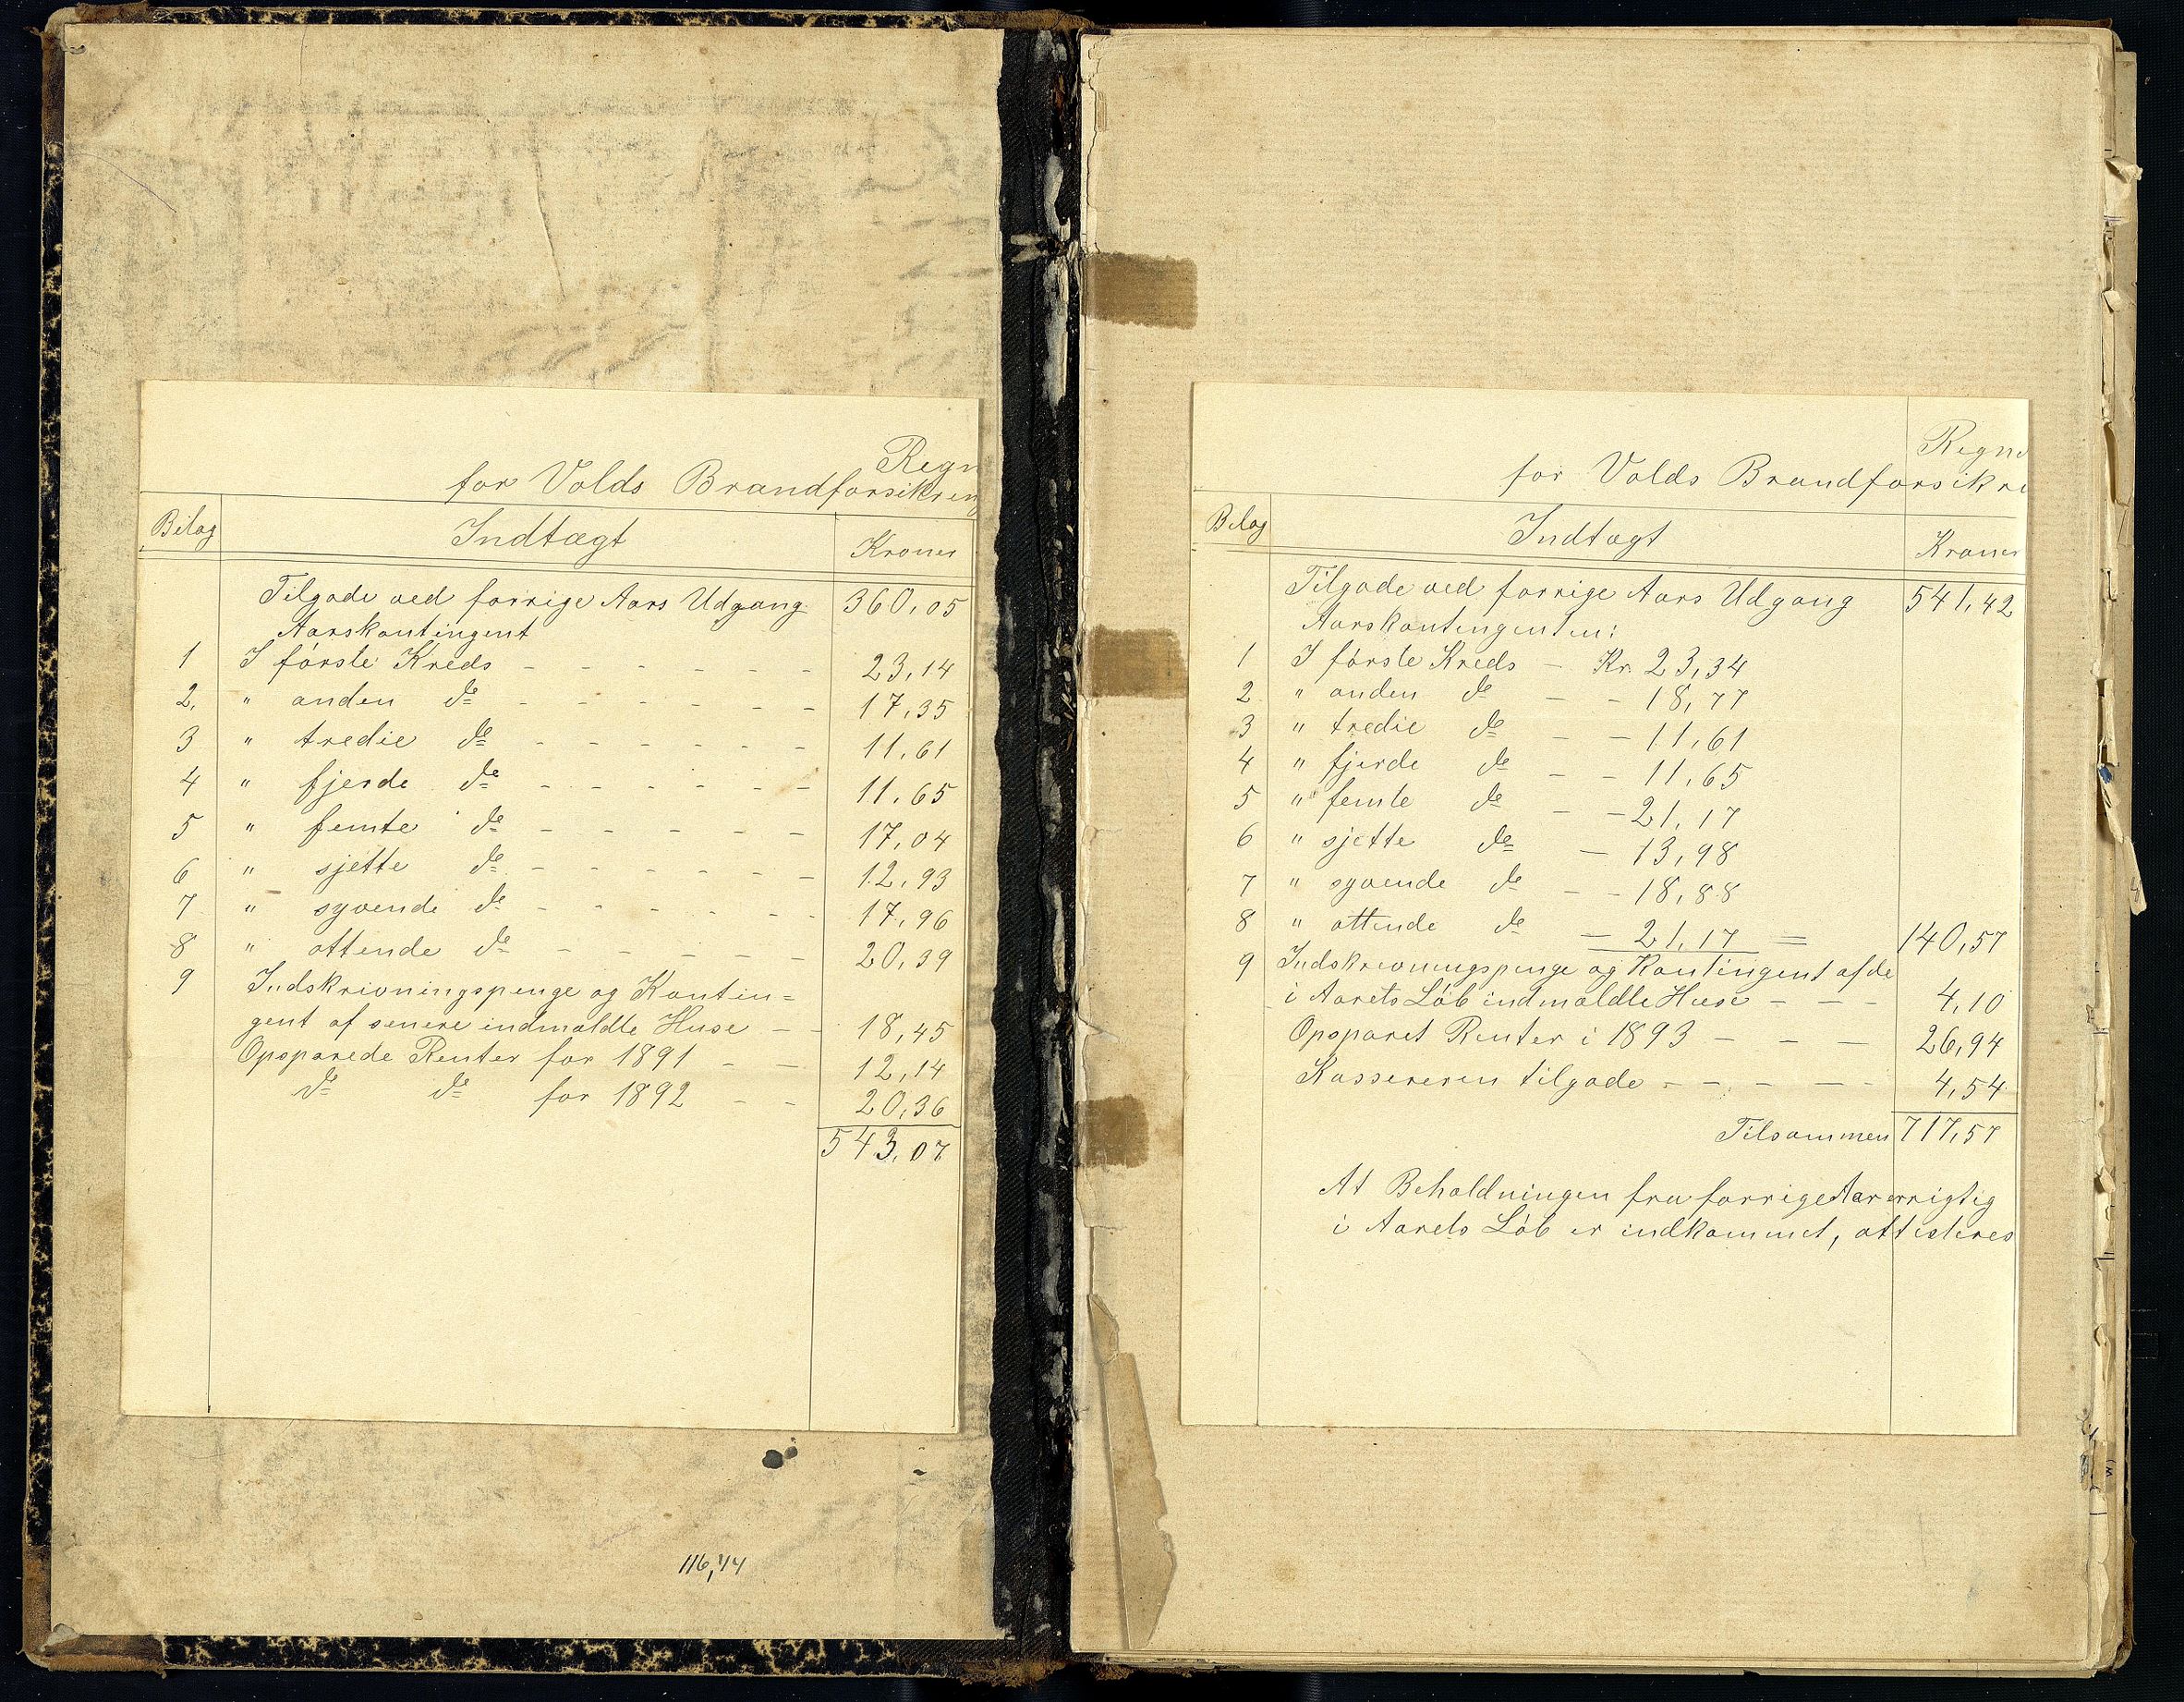 Regn
for Volds Brandforsikrin
Bilag Indtægt Kroner
Tilgode ved forrige Aars Udgang 360,05
Aarskontingent
1 I første Kreds - - - - - - 23,14
2. " anden do - - - - - - 17,35
3 " tredie do - - - - - - 11,61
4 " fjerde do - - - - - - 11,65
5 " femte do - - - - - 17,04
6 " sjette do - - - - - - 12,93
7 " syvende do - - - - - - 17,96
8 " ottende do - - - - - 20,39
9 Indskrivningspenge og Kontin=
gent af senere indmeldte Huse - - 18,45
Opsparede Renter for 1891 - - 12,14
do do for 1892 - - 20,36
543,07
116,44
Regn
for Volds Brandforsikri
Bilag Indtægt Kroner
Tilgode ved forrige Aars Udgang 541,42
Aarskontingenten:
1 I første Kreds - Kr. 23,34
2 " anden do - - 18,77
3 " tredie do - - 11,61
4 " fjerde do - - 11,65
5 " femte do - - 21,17
6 " sjette do - 13,98
7 " syvende do - - 18,88
8 " ottende do - 21,17 = 140,57
9 Indskrivningspenge og Kontingent af de
i Aarets Løb indmeldte Huse - - - 4,10
Opsparet Renter i 1893 - - - 26,94
Kassereren tilgode - - - - - 4,54
Tilsammen 717,57
At Beholdningen fra forrige Aar er rigtig
i Aarets Løb er indkommet, attesteres